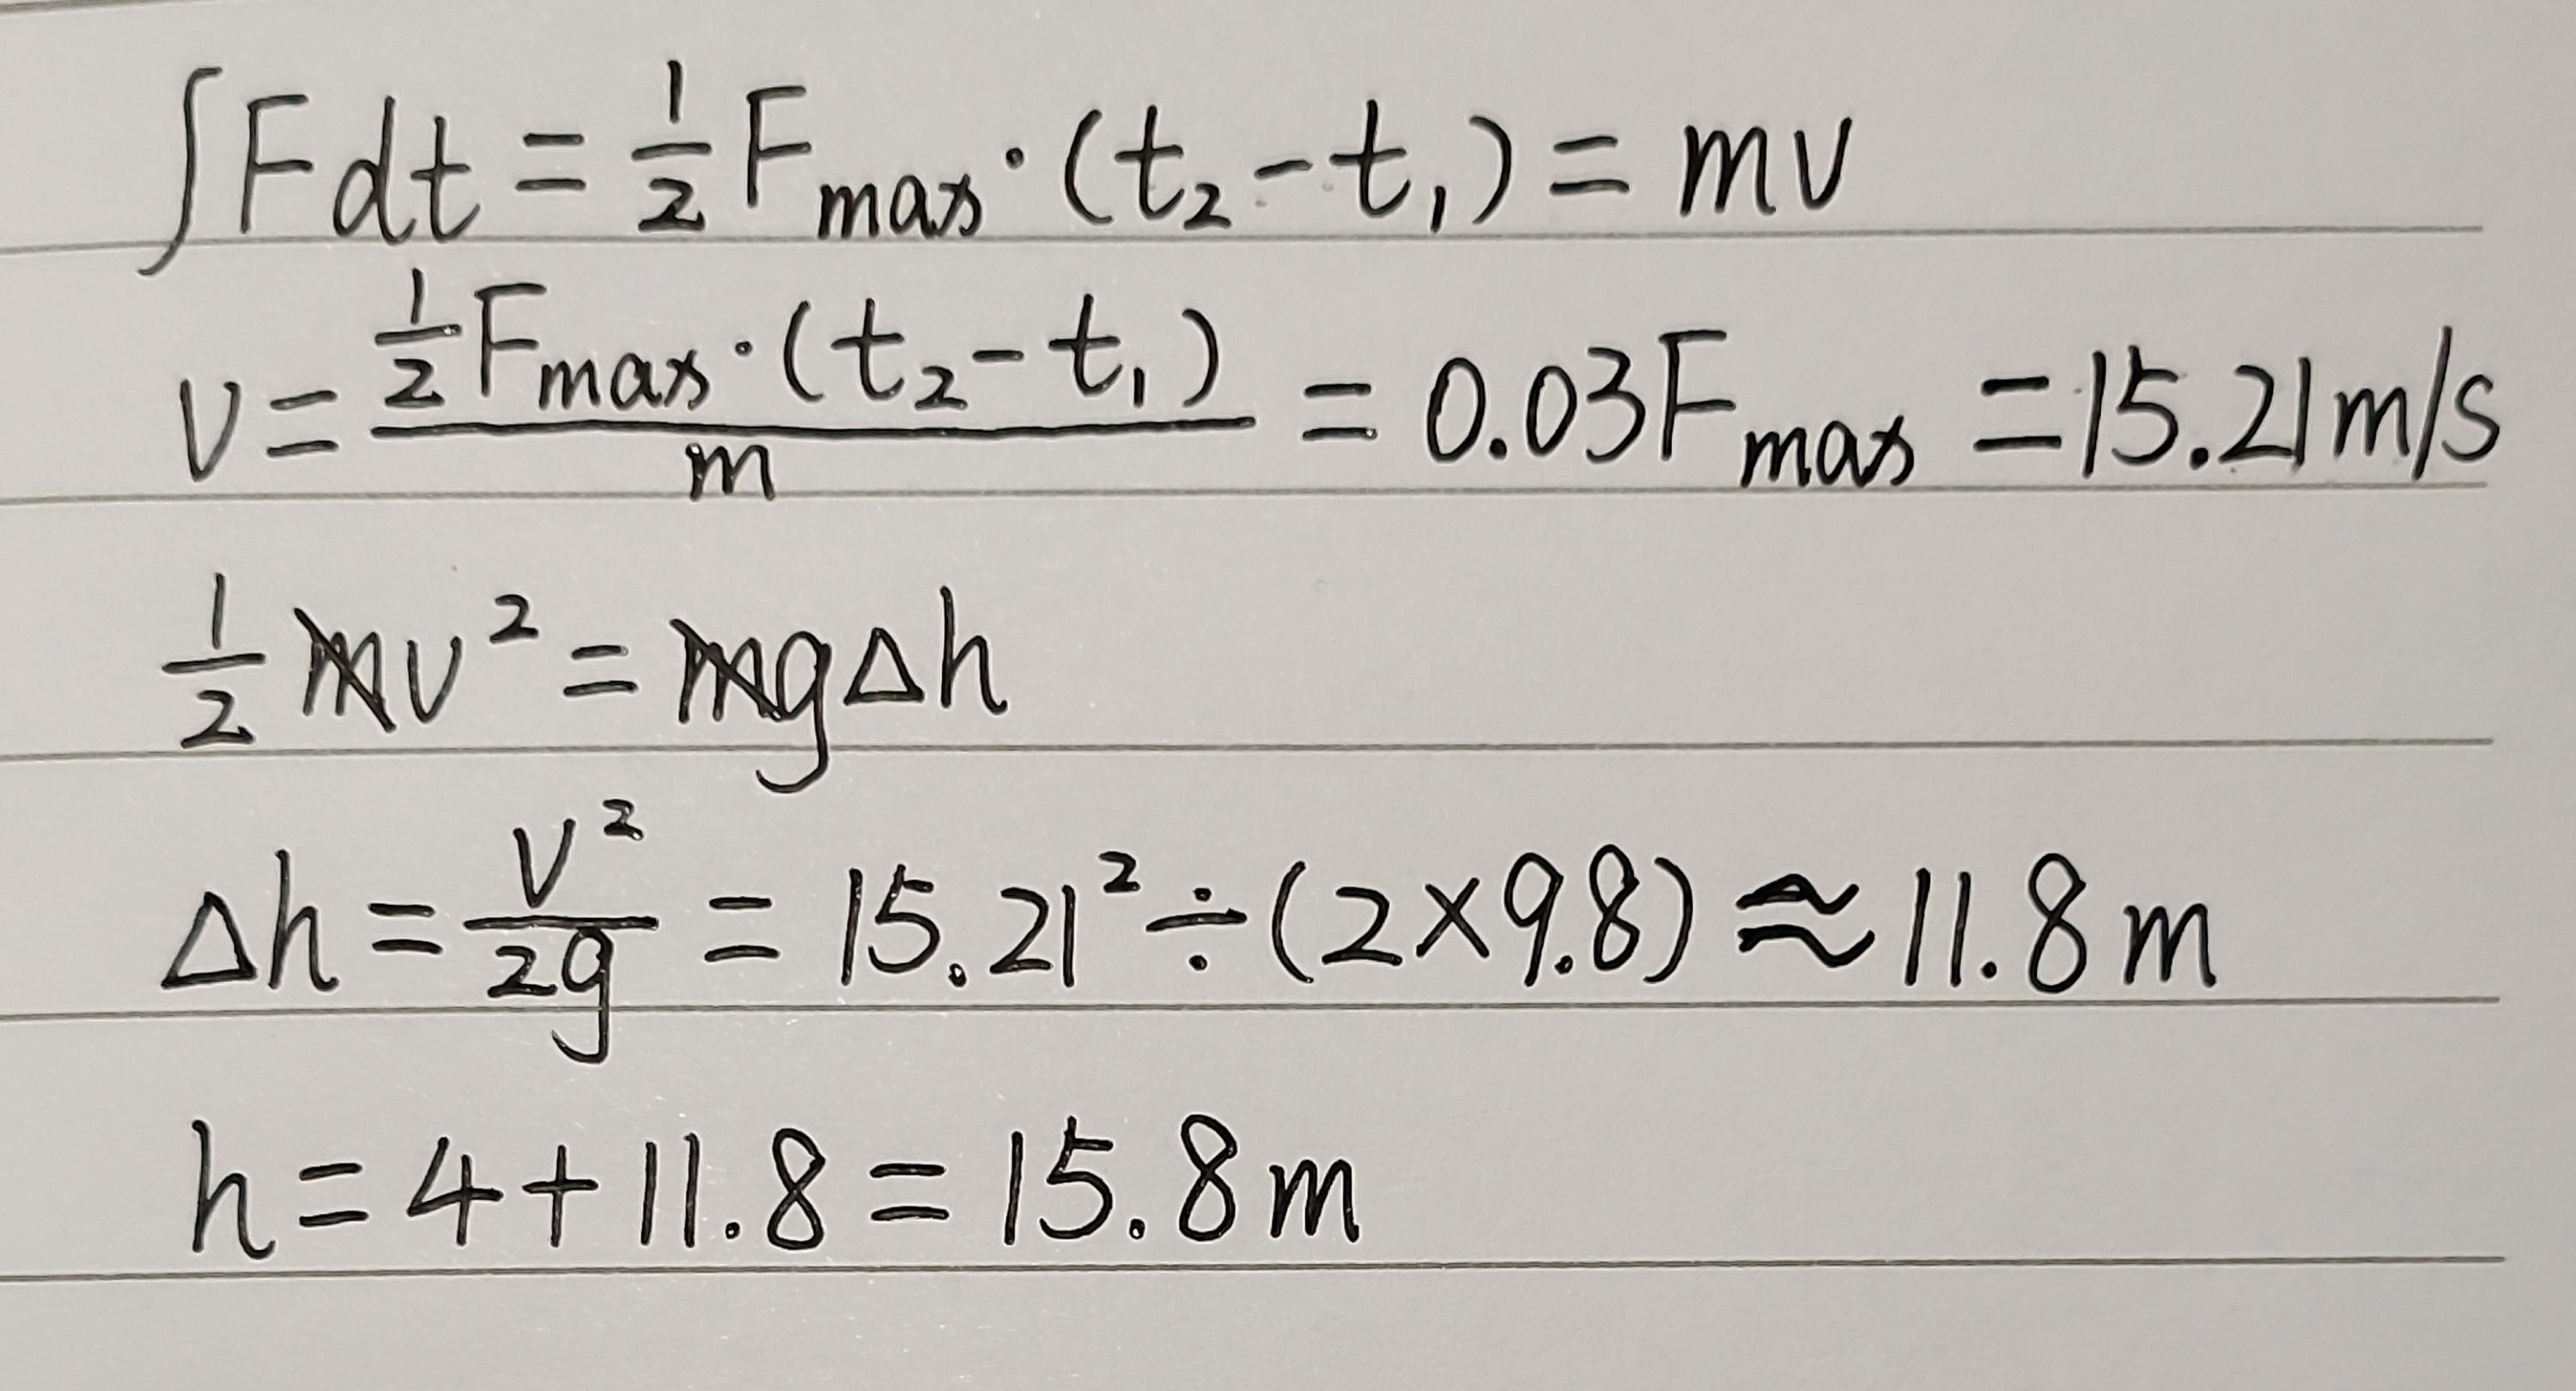 ∫Fdt = 1/2 F_max · (t₂ - t₁) = mv
v = (1/2 F_max · (t₂ - t₁)) / m = 0.03F_max = 15.21 m/s
1/2 mv² = mgΔh
Δh = v²/2g = 15.21² ÷ (2×9.8) ≈ 11.8 m
h = 4 + 11.8 = 15.8 m